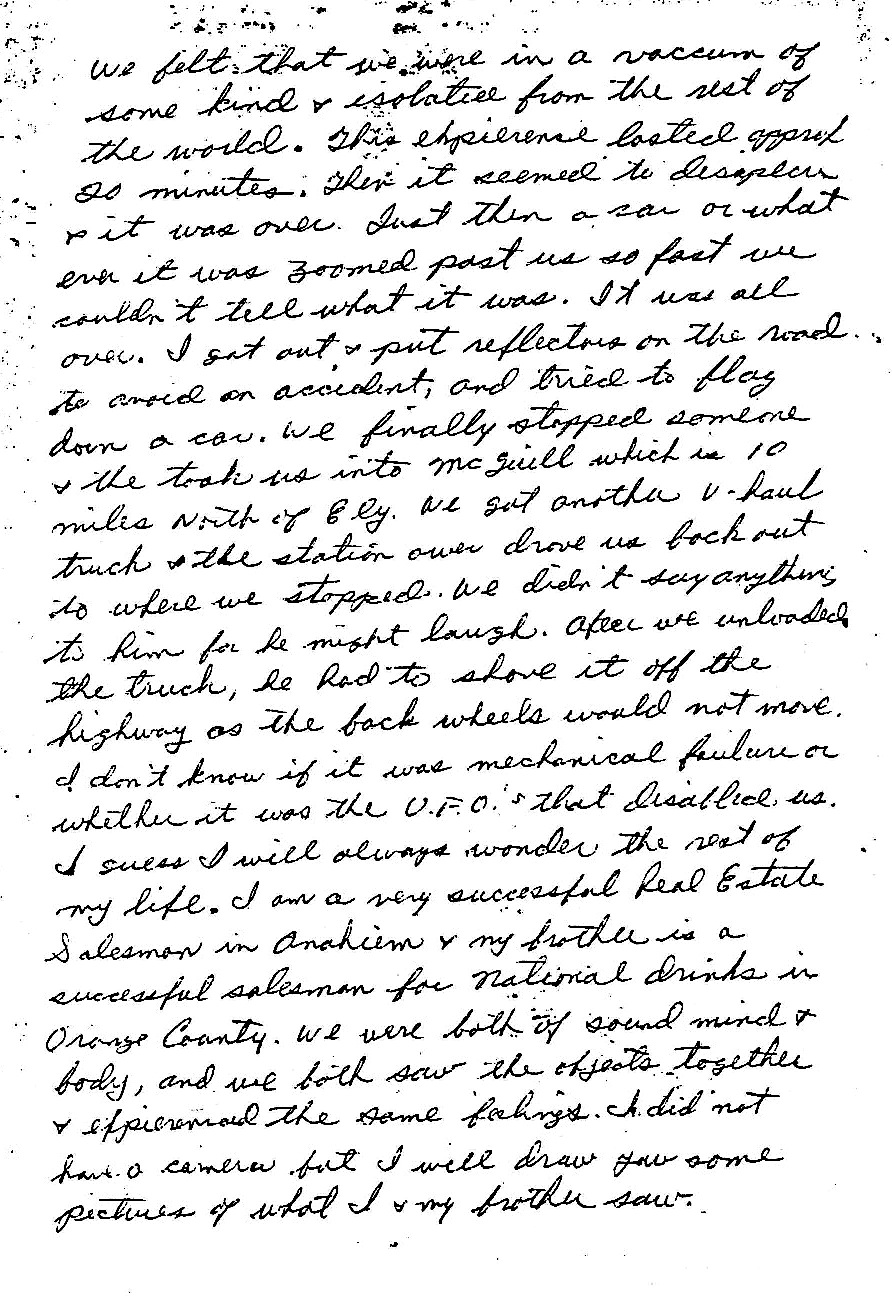 We felt that we were in a vaccum of
some kind & isolatiee from the rest of
the world. This ehpierense lasted approx
20 minutes. Then it seemed to desapear
& it was over. Just then a car or what
ever it was zoomed past us so fast we
couldn't tell what it was. It was all
over. I got out & put reflectors on the road
to avoid an accident, and tried to flag
down a car. We finally stopped someone
& the took us into McGuill which is 10
miles North of Ely. We got another U-haul
truck & the station ower drove us back out
to where we stopped. We didn't say anything
to him for he might laugh. After we unloaded
the truck, he had to shove it off the
highway as the back wheels would not move.
I don't know if it was mechanical failure or
whether it was the U.F.O.'s that disabled us.
I guess I will always wonder the rest of
my life. I am a very successful Real Estate
Salesman in Anahiem & my brother is a
successful salesman for National drinks in
Orange County. We were both of sound mind &
body, and we both saw the objects together
& the same feelings. I did not
have a camera but I will draw you some
pictures of what I & my brother saw.